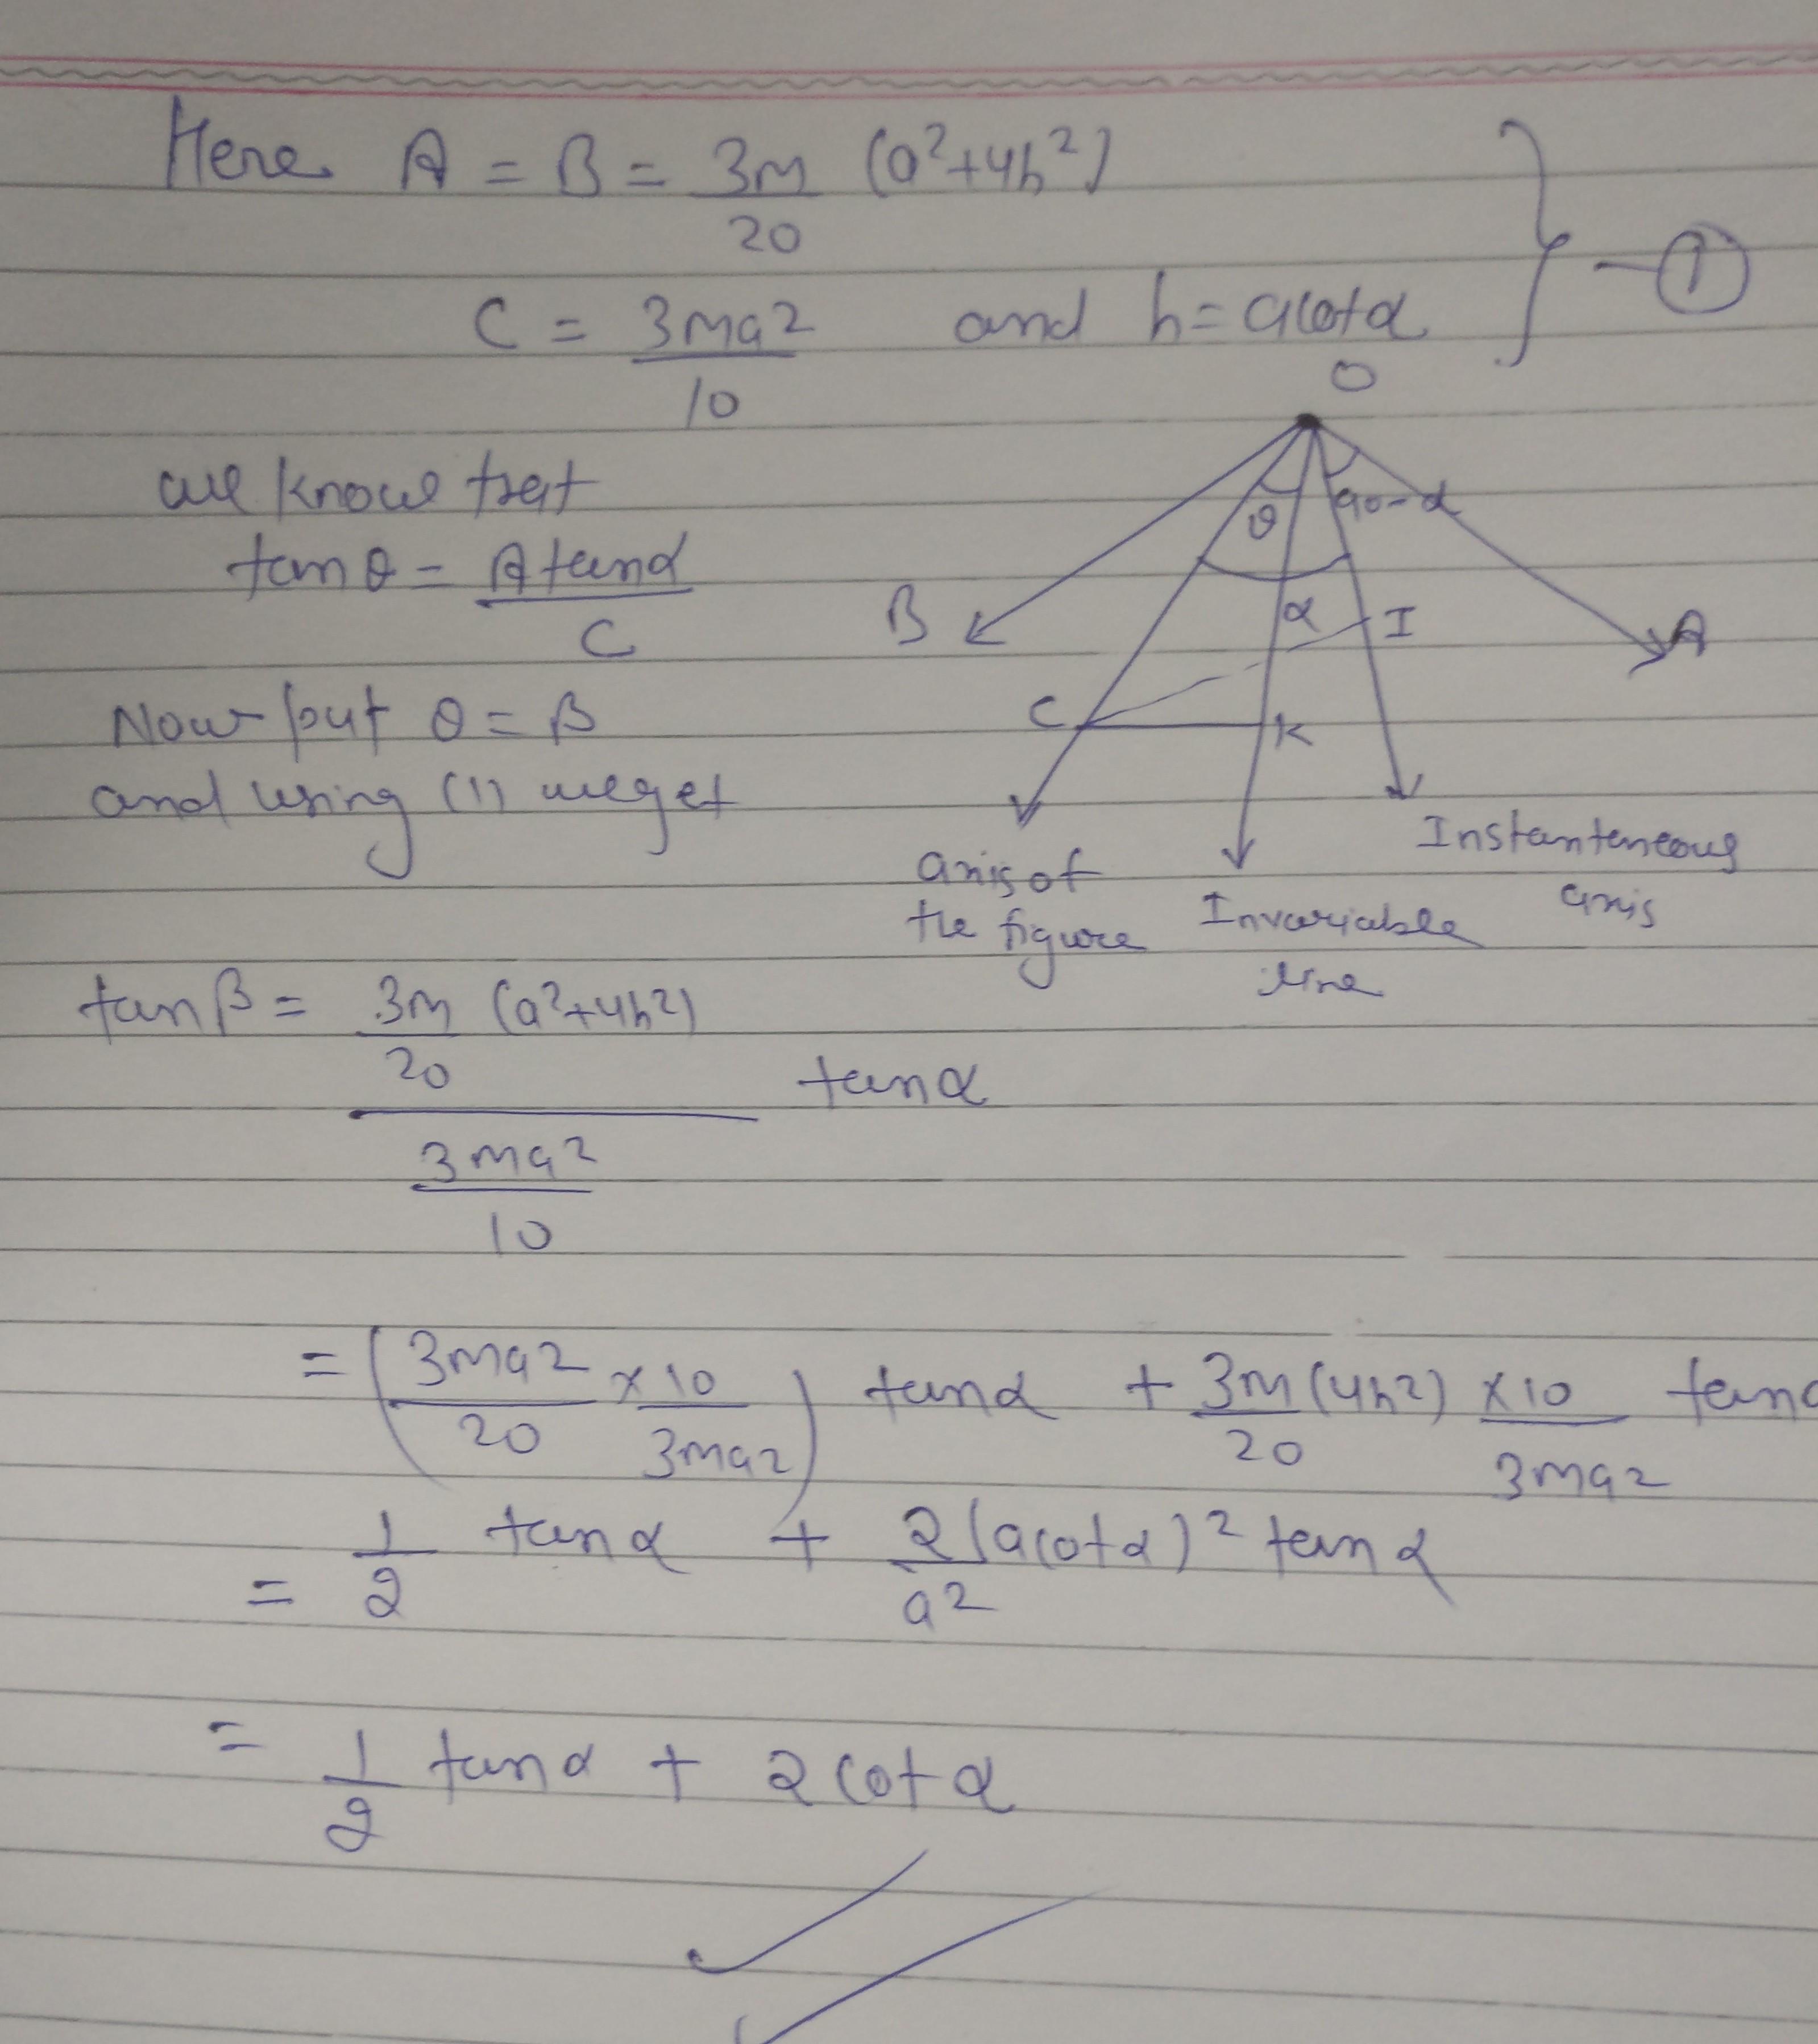 Here A = B = 3m/20 (a²+4h²)
C = 3ma²/10 and h = acotα } — ①
we know that
tanθ = Atanα/C
Now put θ = β
and using (1) we get
O
θ
90-α
α
B
I
A
C
K
axis of the figure
Invariable line
Instanteneous axis
tanβ = (3m/20 (a²+4h²))/(3ma²/10) tanα
= (3ma²/20 × 10/3ma²) tanα + 3m/20 (4h²) × 10/3ma² tanα
= 1/2 tanα + 2(acotα)²/a² tanα
= 1/2 tanα + 2cotα